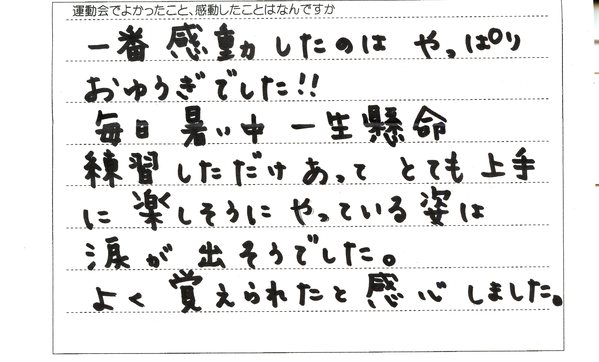 運動会でよかったこと、感動したことはなんですか
一番感動したのは やっぱり
おゆうぎでした!!
毎日 暑い中 一生懸命
練習しただけあって とても上手
に楽しそうに やっている姿は
涙が 出そうでした。
よく 覚えられたと感心しました。